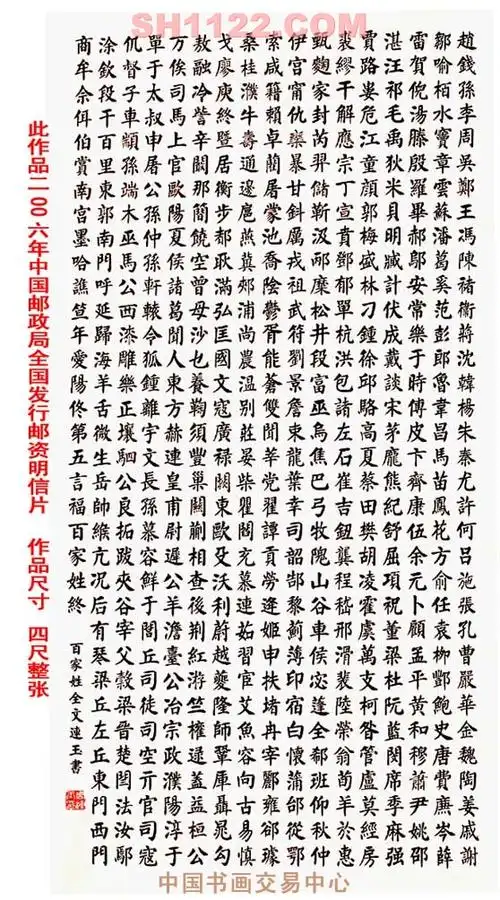 SH1122.COM
趙錢孫李周吳鄭王馮陳褚衛蔣沈韓楊朱秦尤許何呂施張孔曹嚴華金魏陶姜戚謝
鄒喻栢水竇章雲蘇潘葛奚范彭郎魯韋昌馬苗鳳花方俞任袁柳酆鮑史唐費廉岑薛
賀倪湯滕殷羅畢郝鄔安常樂于時傅皮卞齊康伍余元卜顧孟平黄和穆蕭尹姚邵
湛汪祁毛禹狄米貝明臧計伏成戴談宋茅龐熊紀舒屈項祝董梁杜阮藍閔席季麻强
賈路婁危江童顔郭梅盛林刁鍾徐邱駱高夏蔡田樊胡凌霍虞萬支柯昝管盧莫經房
裘繆干解應宗丁宣賁鄧郁單杭洪包諸左石崔吉鈕龔程嵇邢滑裴陸榮翁荀羊於惠
甄麴家封芮羿儲靳汲邴糜松井段富巫烏焦巴弓牧隗山谷車侯宓蓬全郗班仰秋仲
伊宫甯仇欒暴甘鈄厲戎祖武符劉景詹束龍葉幸司韶郜黎薊薄印宿白懷蒲邰從鄂
索咸籍賴卓藺屠蒙池喬陰鬱胥能蒼雙聞莘党翟譚貢勞逄姬申扶堵冉宰酈雍郤璩
桑桂濮牛壽通邊扈燕冀郟浦尚農温別莊晏柴瞿閻充慕連茹習宦艾魚容向古易慎
戈廖庾終暨居衡步都耿滿弘匡國文寇廣禄闕東歐殳沃利蔚越夔隆師鞏厙聶晁勾
敖融冷訾辛闞那簡饒空曾毋沙乜養鞠須豐巢關蒯相查後荆紅游竺權逯蓋益桓公
万俟司馬上官歐陽夏侯諸葛聞人東方赫連皇甫尉遲公羊澹臺公冶宗政濮陽淳于
單于太叔申屠公孫仲孫軒轅令狐鍾離宇文長孫慕容鮮于閭丘司徒司空亓官司寇
仉督子車顓孫端木巫馬公西漆雕樂正壤駟公良拓跋夾谷宰父穀梁晋楚閆法汝鄢
涂欽段干百里東郭南門呼延歸海羊舌微生岳帥緱亢况后有琴梁丘左丘東門西門
商牟佘佴伯賞南宫墨哈譙笪年愛陽佟第五言福百家姓終
百家姓全文連玉書
此作品二00六年中国邮政局全国发行邮资明信片 作品尺寸 四尺整张
中国书画交易中心